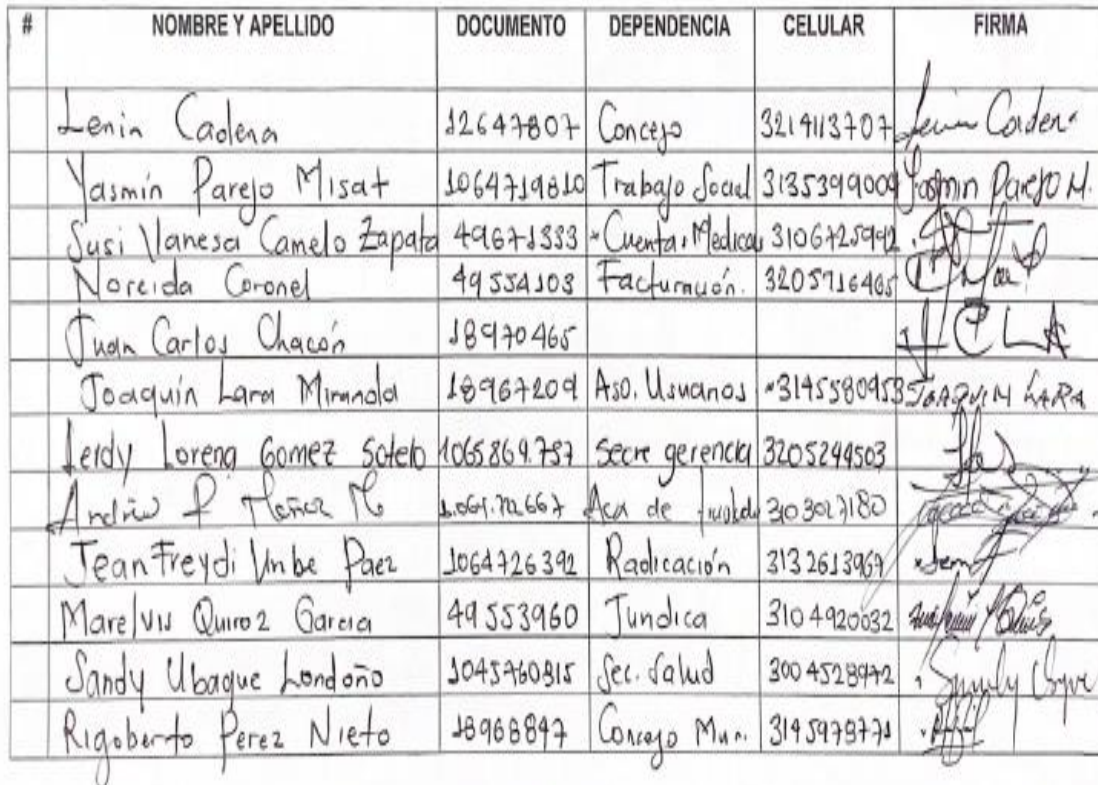 # NOMBRE Y APELLIDO DOCUMENTO DEPENDENCIA CELULAR FIRMA
Lenin Cadena 12647807 Concejo 3214113707 Lenin Cadena
Yasmín Parejo Misat 1064719810 Trabajo Social 3135399009 Yasmin Parejo M.
Susi Vanesa Camelo Zapata 49671333 Cuentas Medicas 3106725992
Noreida Coronel 49554103 Facturación. 3205716465
Juan Carlos Chacón 18970465 JCLA
Joaquín Lara Miranda 18967209 Aso. Usuarios 3145580953 JOAQUIN LARA
Leidy Lorena Gomez Sotelo 1065.869.787 Secre gerencia 3205244503
de 303027180
Jean Freydi Uribe Paez 1064726392 Radicación 3132613967
Marelvis Quiroz Garcia 49553960 Juridica 3104920032
Sandy Ubaque Londoño 1045760815 Sec. Salud 3004528972
Rigoberto Perez Nieto 18968847 Concejo Mun. 3145978771